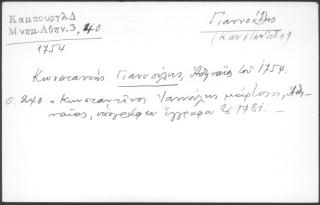 Καμπούρογλ.Δ
Μνημ.Αθην.3, 240
1754
Γιαννούλης
(Κωνσταντῖνος)
Κωνσταντῆς Γιανούλης, Ἀθηναῖος τοῦ 1754.
σ. 240 "Κωνσταντῖνος Γιανούλης μάρτυς, Ἀθη-
ναῖος, ὑπογράφει ἔγγραφο τοῦ 1781. —